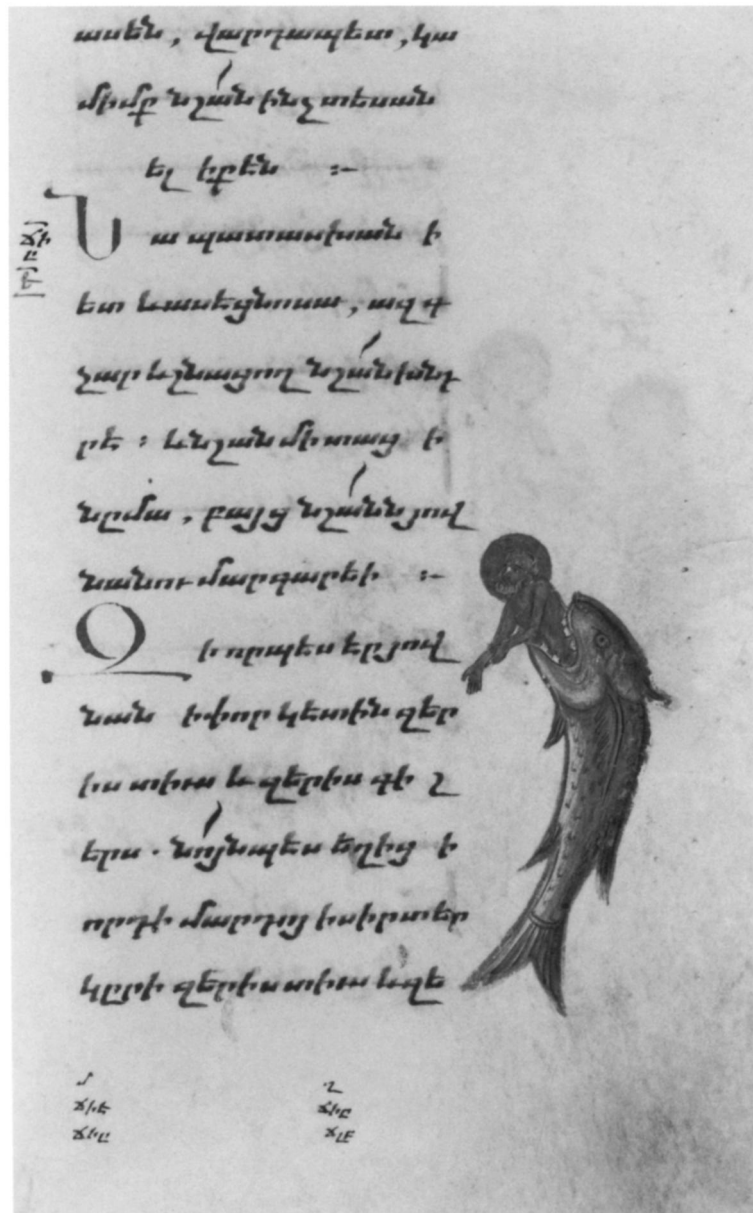 ասեն, վարդապետ, կա
միմք նշան ինչ տեսան
ել ի քէն :-
Նա պատասխանի
ետ և ասէ ցնոսա, ազգ
չար և շնացող նշան խնդ
րէ : և նշան մի տացի
նըմա, բայց նշանն յով
նանու մարգարէի :-
Զի որպես էր յով
նան ի փոր կետին զեր
իս տիւս և զերիս գիշ
երս. նոյնպես եղիցի
որդի մարդոյ ի սիրտ եր
կըրի զերիս տիւս և զե